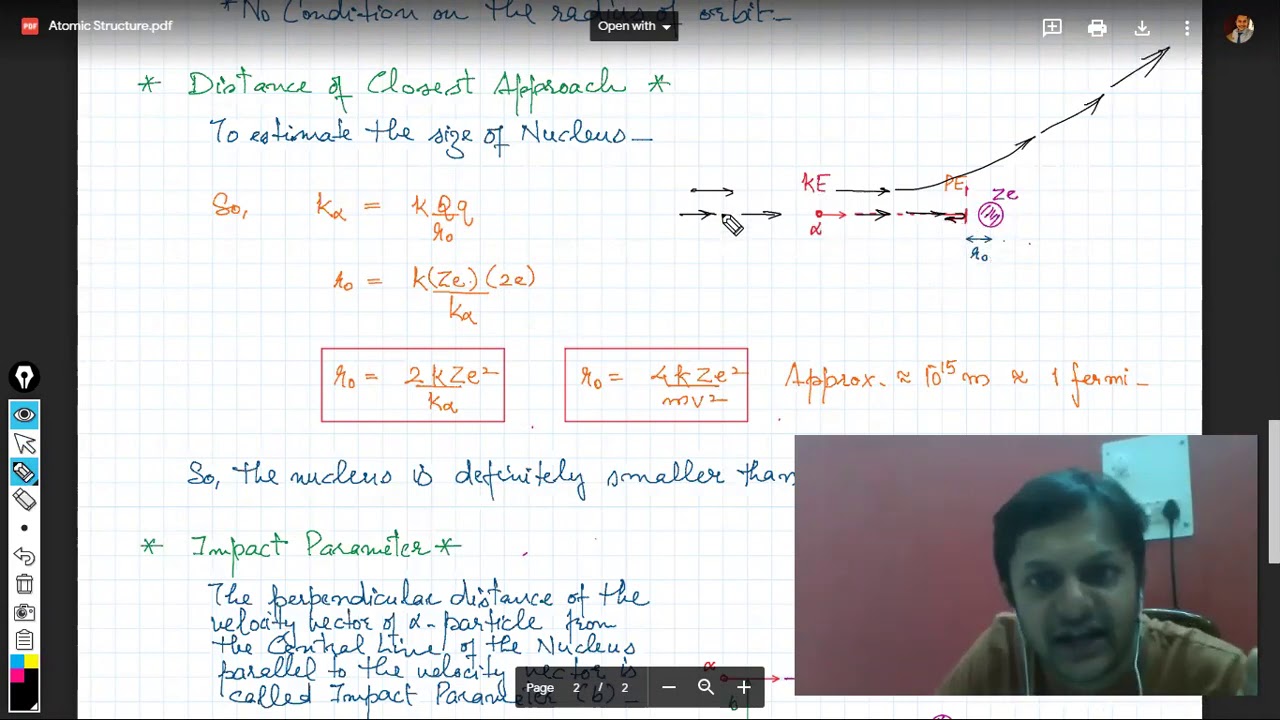 * No Condition on the radius of orbit-
Atomic Structure.pdf
Open with
* Distance of Closest Approach *
To estimate the size of Nucleus-
KE
PE,
Ze
α
r₀
So, Kα = kQq/r₀
r₀ = k(Ze)(2e)/Kα
r₀ = 2kZe²/Kα
r₀ = 4kZe²/mv²
Approx. ≈ 10¹⁵ m ≈ 1 fermi-
So, the nucleus is definitely smaller than
* Impact Parameter *
The perpendicular distance of the
velocity vector of α-particle from
the Central Line of the Nucleus
parallel to the velocity vector is
called Impact Parameter (b)-
α
b
Page 2 / 2